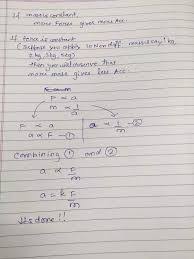 If mass is constant,
more Force gives more Acc.
If force is constant
(Suppose you apply 10N on diff. masses say 1kg,
2kg, 3kg, 5kg)
then you will observe that
more mass gives less Acc.
F ∝ a
m ∝ 1/a
F ∝ a
a ∝ F - ①
a ∝ 1/m - ②
Combining ① and ②
a ∝ F/m
a = k F/m
Its done!!